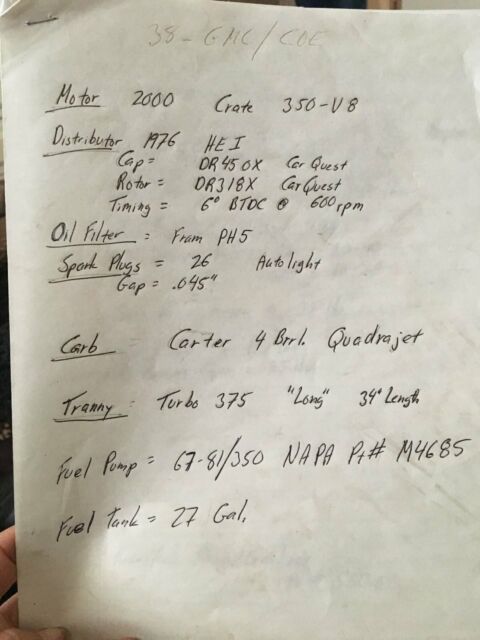 38-GMC/COE
Motor 2000 Crate 350-V8
Distributor 1976 HEI
Cap = DR450X CarQuest
Rotor = DR318X CarQuest
Timing = 6° BTDC @ 600rpm
Oil Filter = Fram PH5
Spark Plugs = 26 Autolight
Gap = .045"
Carb = Carter 4 Brrl. Quadrajet
Tranny = Turbo 375 "Long" 34" Length
Fuel Pump = 67-81/350 NAPA Pt# M4685
Fuel Tank = 27 Gal.